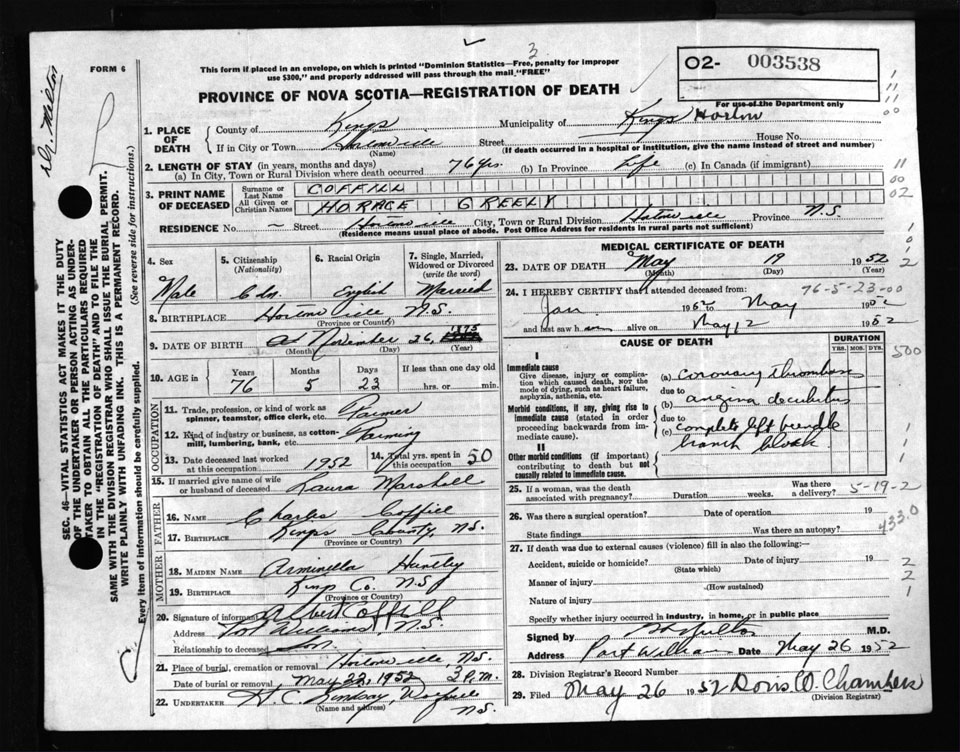 FORM 6
Dr. Milton
3
This form if placed in an envelope, on which is printed "Dominion Statistics—Free, penalty for improper
use $300," and properly addressed will pass through the mail "FREE"
PROVINCE OF NOVA SCOTIA—REGISTRATION OF DEATH
02- 003538
For use of the Department only
1. PLACE OF DEATH
County of Kings Municipality of Kings Horton
If in City or Town Hortonville (Name) Street House No.
(If death occurred in a hospital or institution, give the name instead of street and number)
2. LENGTH OF STAY (in years, months and days)
(a) In City, Town or Rural Division where death occurred 76 yrs. (b) In Province Life (c) In Canada (if immigrant)
3. PRINT NAME OF DECEASED
Surname or Last Name COFFILL
All Given or Christian Names HORACE GREELY
RESIDENCE No. ~ Street Hortonville City, Town or Rural Division Hortonville Province N.S.
(Residence means usual place of abode. Post Office Address for residents in rural parts not sufficient)
4. Sex Male
5. Citizenship (Nationality) Cdn.
6. Racial Origin English
7. Single, Married, Widowed or Divorced (write the word) Married
8. BIRTHPLACE Hortonville N.S.
(Province or Country)
9. DATE OF BIRTH November 26, 1875
(Month) (Day) (Year)
10. AGE in Years 76 Months 5 Days 23 If less than one day old hrs. or min.
OCCUPATION
11. Trade, profession, or kind of work as spinner, teamster, office clerk, etc. Farmer
12. Kind of industry or business, as cotton-mill, lumbering, bank, etc. Farming
13. Date deceased last worked at this occupation 1952
14. Total yrs. spent in this occupation 50
15. If married give name of wife or husband of deceased Laura Marshall
FATHER
16. NAME Charles Coffill
17. BIRTHPLACE Kings County, N.S.
(Province or Country)
MOTHER
18. MAIDEN NAME Arminella Huntley
19. BIRTHPLACE Kings Co. N.S.
(Province or Country)
20. Signature of informant Albert Coffill
Address Port Williams, N.S.
Relationship to deceased Son
21. Place of burial, cremation or removal Hortonville, N.S.
Date of burial or removal May 22, 1952 2 P.M.
22. UNDERTAKER H. C. Lindsay, Wolfville N.S.
(Name and address)
MEDICAL CERTIFICATE OF DEATH
23. DATE OF DEATH May 19 1952
(Month) (Day) (Year)
24. I HEREBY CERTIFY that I attended deceased from: 76-5-23-00
Jan. 1952 to May 1952
and last saw h alive on May 12 1952
CAUSE OF DEATH
DURATION
YRS. MOS. DYS.
I
Immediate cause
Give disease, injury or complication which caused death, not the mode of dying, such as heart failure, asphyxia, asthenia, etc.
(a) coronary thrombosis
due to
Morbid conditions, if any, giving rise to immediate cause (stated in order proceeding backwards from immediate cause).
(b) angina decubitus
due to
(c) complete left bundle branch block
II
Other morbid conditions (if important) contributing to death but not causally related to immediate cause.
500
25. If a woman, was the death associated with pregnancy? Duration weeks. Was there a delivery? 5-19-2
26. Was there a surgical operation? Date of operation 19
State findings Was there an autopsy? 433.0
27. If death was due to external causes (violence) fill in also the following:—
Accident, suicide or homicide? Date of injury 19
(State which)
Manner of injury (How sustained)
Nature of injury
Specify whether injury occurred in industry, in home, or in public place
Signed by M.D.
Address Port Williams Date May 26 1952
28. Division Registrar's Record Number
29. Filed May 26 1952 Doris W. Chambers
(Division Registrar)
SEC. 46—VITAL STATISTICS ACT MAKES IT THE DUTY
OF THE UNDERTAKER OR PERSON ACTING AS UNDER-
TAKER TO OBTAIN ALL THE PARTICULARS REQUIRED
IN THE "REGISTRATION OF DEATH" AND TO FILE THE
SAME WITH THE DIVISION REGISTRAR WHO SHALL ISSUE THE BURIAL PERMIT.
WRITE PLAINLY WITH UNFADING INK. THIS IS A PERMANENT RECORD.
Every item of information should be carefully supplied. (See reverse side for instructions.)